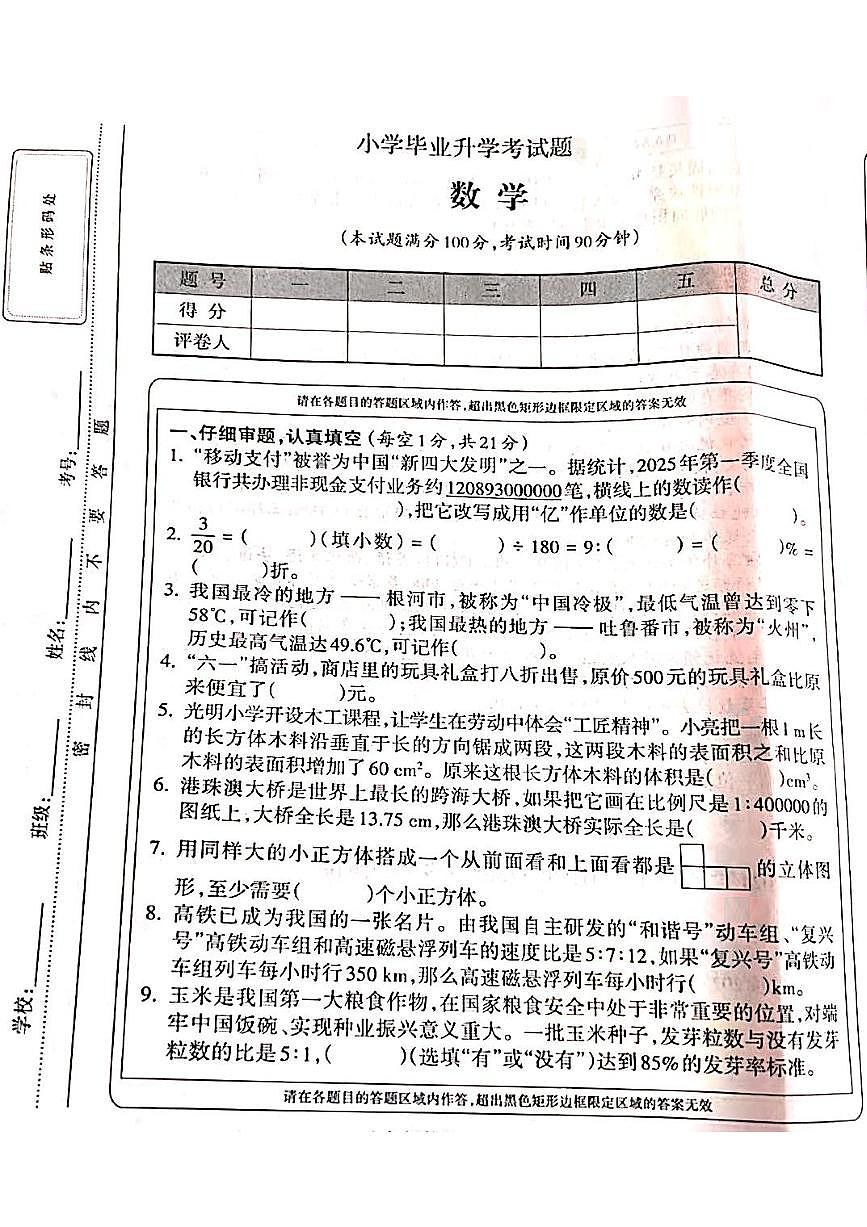 小学毕业升学考试题
数学
(本试题满分100分,考试时间90分钟)
题号 一 二 三 四 五 总分
得分
评卷人
贴条形码处
学校: 班级: 姓名: 考号:
密封线内不要答题
请在各题目的答题区域内作答,超出黑色矩形边框限定区域的答案无效
一、仔细审题,认真填空(每空1分,共21分)
1. “移动支付”被誉为中国“新四大发明”之一。据统计,2025年第一季度全国
银行共办理非现金支付业务约120893000000笔,横线上的数读作(
),把它改写成用“亿”作单位的数是( )。
2. 3/20 = ( )(填小数) = ( ) ÷ 180 = 9:( ) = ( )% =
( )折。
3. 我国最冷的地方 —— 根河市,被称为“中国冷极”,最低气温曾达到零下
58℃,可记作( );我国最热的地方 —— 吐鲁番市,被称为“火州”,
历史最高气温达49.6℃,可记作( )。
4. “六一”搞活动,商店里的玩具礼盒打八折出售,原价500元的玩具礼盒比原
来便宜了( )元。
5. 光明小学开设木工课程,让学生在劳动中体会“工匠精神”。小亮把一根1m长
的长方体木料沿垂直于长的方向锯成两段,这两段木料的表面积之和比原
木料的表面积增加了60 cm²。原来这根长方体木料的体积是( )cm³。
6. 港珠澳大桥是世界上最长的跨海大桥,如果把它画在比例尺是1:400000的
图纸上,大桥全长是13.75 cm,那么港珠澳大桥实际全长是( )千米。
7. 用同样大的小正方体搭成一个从前面看和上面看都是 的立体图
形,至少需要( )个小正方体。
8. 高铁已成为我国的一张名片。由我国自主研发的“和谐号”动车组、“复兴
号”高铁动车组和高速磁悬浮列车的速度比是5:7:12,如果“复兴号”高铁动
车组列车每小时行350 km,那么高速磁悬浮列车每小时行( )km。
9. 玉米是我国第一大粮食作物,在国家粮食安全中处于非常重要的位置,对端
牢中国饭碗、实现种业振兴意义重大。一批玉米种子,发芽粒数与没有发芽
粒数的比是5:1,( )(选填“有”或“没有”)达到85%的发芽率标准。
请在各题目的答题区域内作答,超出黑色矩形边框限定区域的答案无效